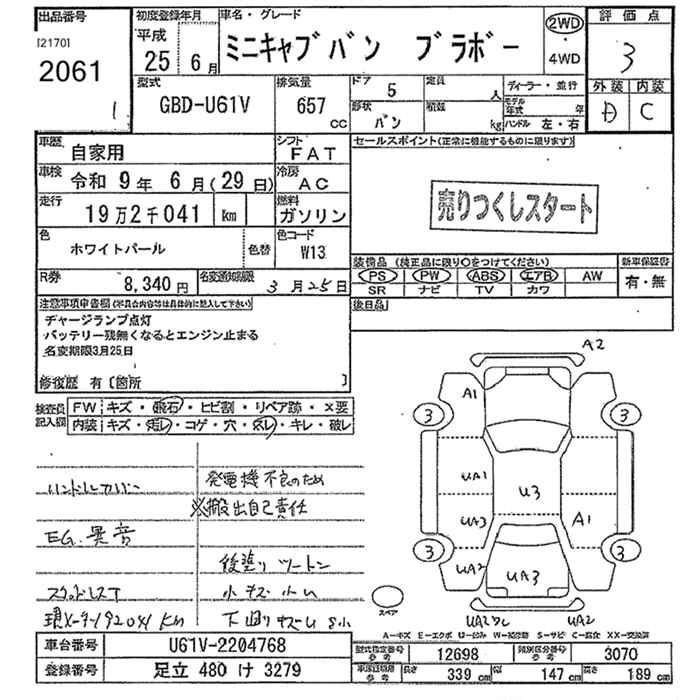 出品番号
[2170]
2061
1
初度登録年月
平成
25 6月
車名・グレード
ミニキャブバン ブラボー
2WD
4WD
評価点
3
外装 内装
D C
型式
GBD-U61V
排気量
657
CC
ドア 5
形状
バン
定員
人
積載
kg
ディーラー・並行
モデル年式 年
ハンドル 左・右
車歴
自家用
シフト
FAT
車検
令和 9年 6月(29日)
冷房
AC
走行
19万2千041 km
燃料
ガソリン
色
ホワイトパール
色替
色コード
W13
R券
8,340円
名変通知期限
3月25日
セールスポイント(正常に機能するものに限ります)
売りつくしスタート
装備品(純正品に限り○をつけてください)
PS PW ABS エアB AW
SR ナビ TV カワ
新車保証書
有・無
後日品
注意事項申告欄(不具合内容等は具体的に記入して下さい)
チャージランプ点灯
バッテリー残無くなるとエンジン止まる
名変期限3月25日
修復歴 有〔箇所 〕
検査員記入欄
FW キズ・飛石・ヒビ割・リペア跡・×要
内装 キズ・汚レ・コゲ・穴・スレ・キレ・破レ
ハンドルカバー
EG.異音
スタッドレスT
現メーター192041km
発電機不良のため
※搬出自己責任
後塗りツートン
小キズ小凹
下廻りサビ小
A2
A1
3
3
UA1
U3
UA3
A1
3
3
UA2
UA3
UA2
スペア
A-キズ E-エクボ U-凹み W-補修跡 S-サビ C-腐食 XX-交換済
車台番号
U61V-2204768
登録番号
足立 480 け 3279
型式指定番号 参考
12698
類別区分番号 参考
3070
車両諸元値 参考
長さ 339 cm 幅 147 cm 高さ 189 cm